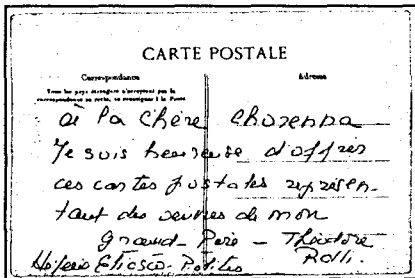 CARTE POSTALE
Correspondance
Adresse
Tous les pays étrangers n'acceptent pas la
correspondance au recto, se renseigner à la Poste
à la Chère
Je suis heureuse d'offrir
ces cartes postales représen-
tant des œuvres de mon
Grand-Père – Théodore
Ralli.